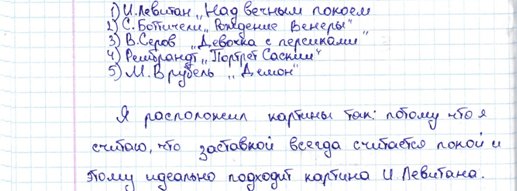 1) И.Левитан „Над вечным покоем
2) С. Боттичели „Рождение Венеры"
3) В.Серов „Девочка с персиками"
4) Рембрандт „Портрет Саскии"
5) М.Врубель „Демон"
Я расположил картины так: потому что я
считаю, что заставкой всегда считается покой и
этому идеально подходит картина И.Левитана.